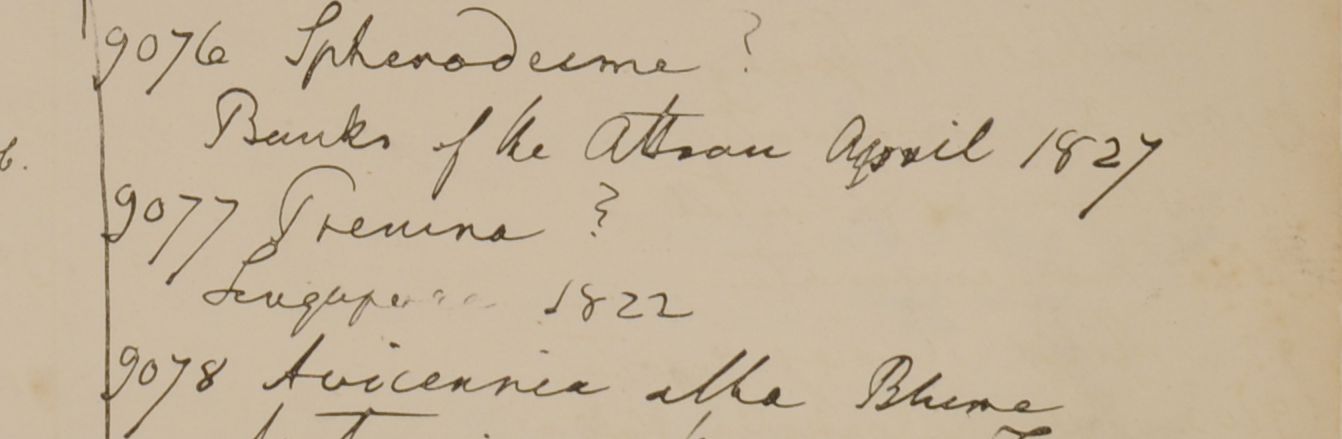 9076 Sphenodesme ?
Banks of the Attran April 1827
9077 Premna ?
Singapore 1822
9078 Avicennia alba Blume